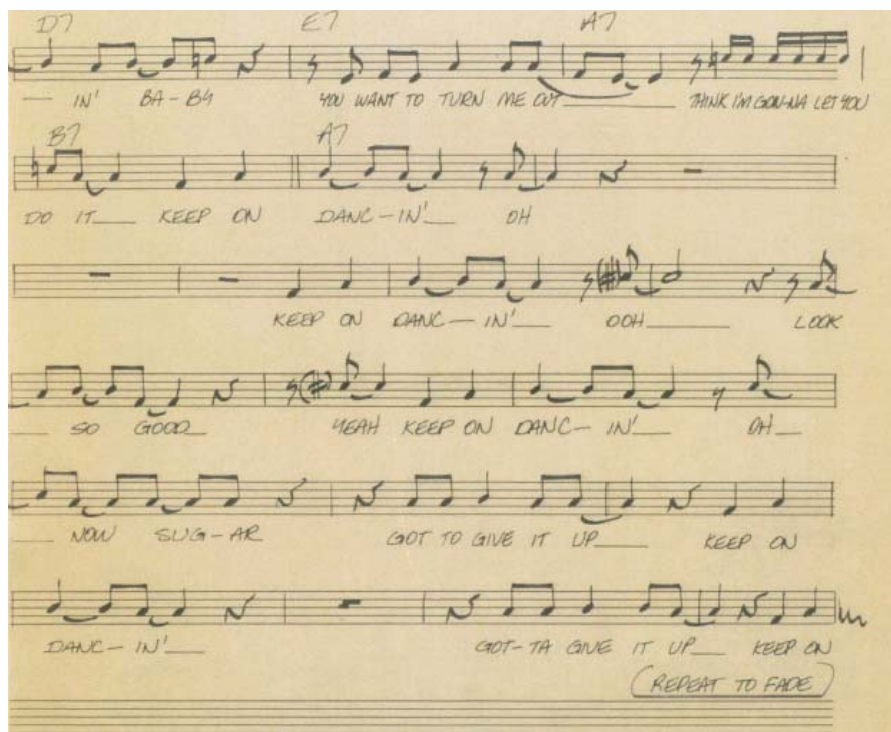 D7 E7 A7
— IN' BA-BY YOU WANT TO TURN ME OUT____ THINK I'M GON-NA LET YOU
B7 A7
DO IT__ KEEP ON DANC-IN'__ OH
KEEP ON DANC-IN'__ OOH____ LOOK
__ SO GOOD__ YEAH KEEP ON DANC-IN'__ OH__
__ NOW SUG-AR GOT TO GIVE IT UP__ KEEP ON
DANC-IN'__ GOT-TA GIVE IT UP__ KEEP ON
(REPEAT TO FADE)